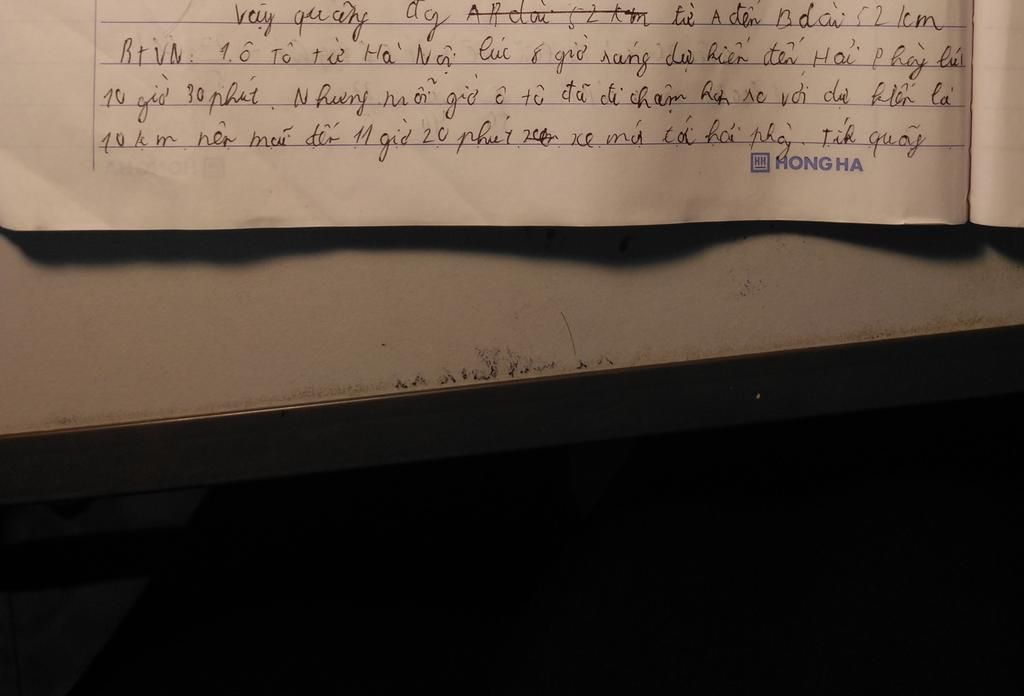 Vậy quãng đg từ A đến B dài 52 km
BTVN: 1. Ô Tô từ Hà Nội lúc 8 giờ sáng dự kiến đến Hải Phòng lúc
10 giờ 30 phút. Nhưng mỗi giờ ô tô đã đi chậm hơn so với dự kiến là
10 km nên mãi đến 11 giờ 20 phút xe mới tới hải phòng. Tính quãng
HH HONG HA